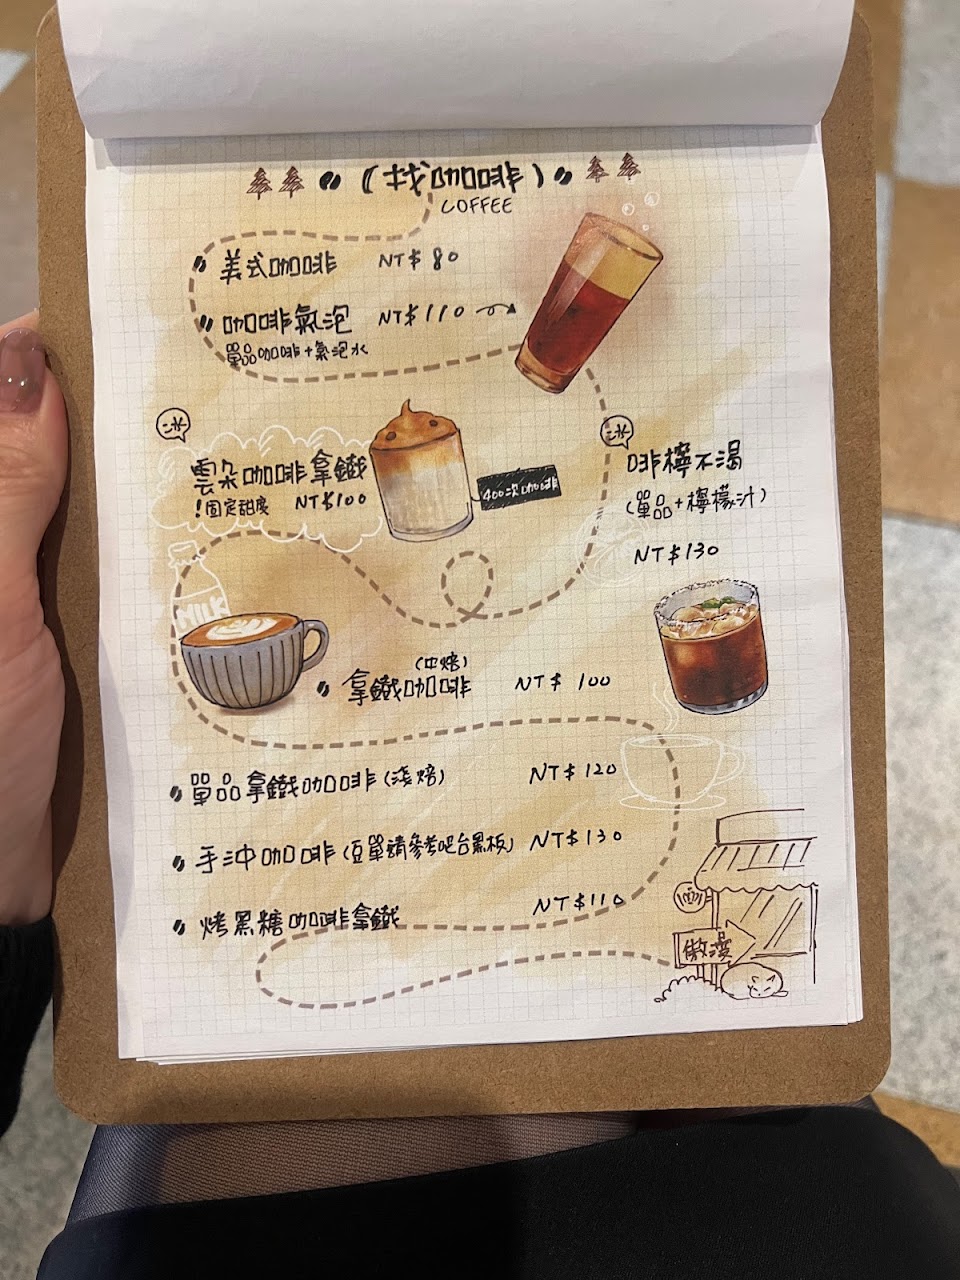 (找咖啡)
COFFEE
美式咖啡 NT$ 80
咖啡氣泡 NT$110
單品咖啡+氣泡水
冰
雲朵咖啡拿鐵
!固定甜度 NT$100
400次咖啡
冰
啡檸不渴
(單品+檸檬汁)
NT$130
MILK
(中焙)
拿鐵咖啡 NT$ 100
單品拿鐵咖啡(淺焙) NT$120
手沖咖啡(豆單請參考吧台黑板) NT$130
烤黑糖咖啡拿鐵 NT$110
傲漫